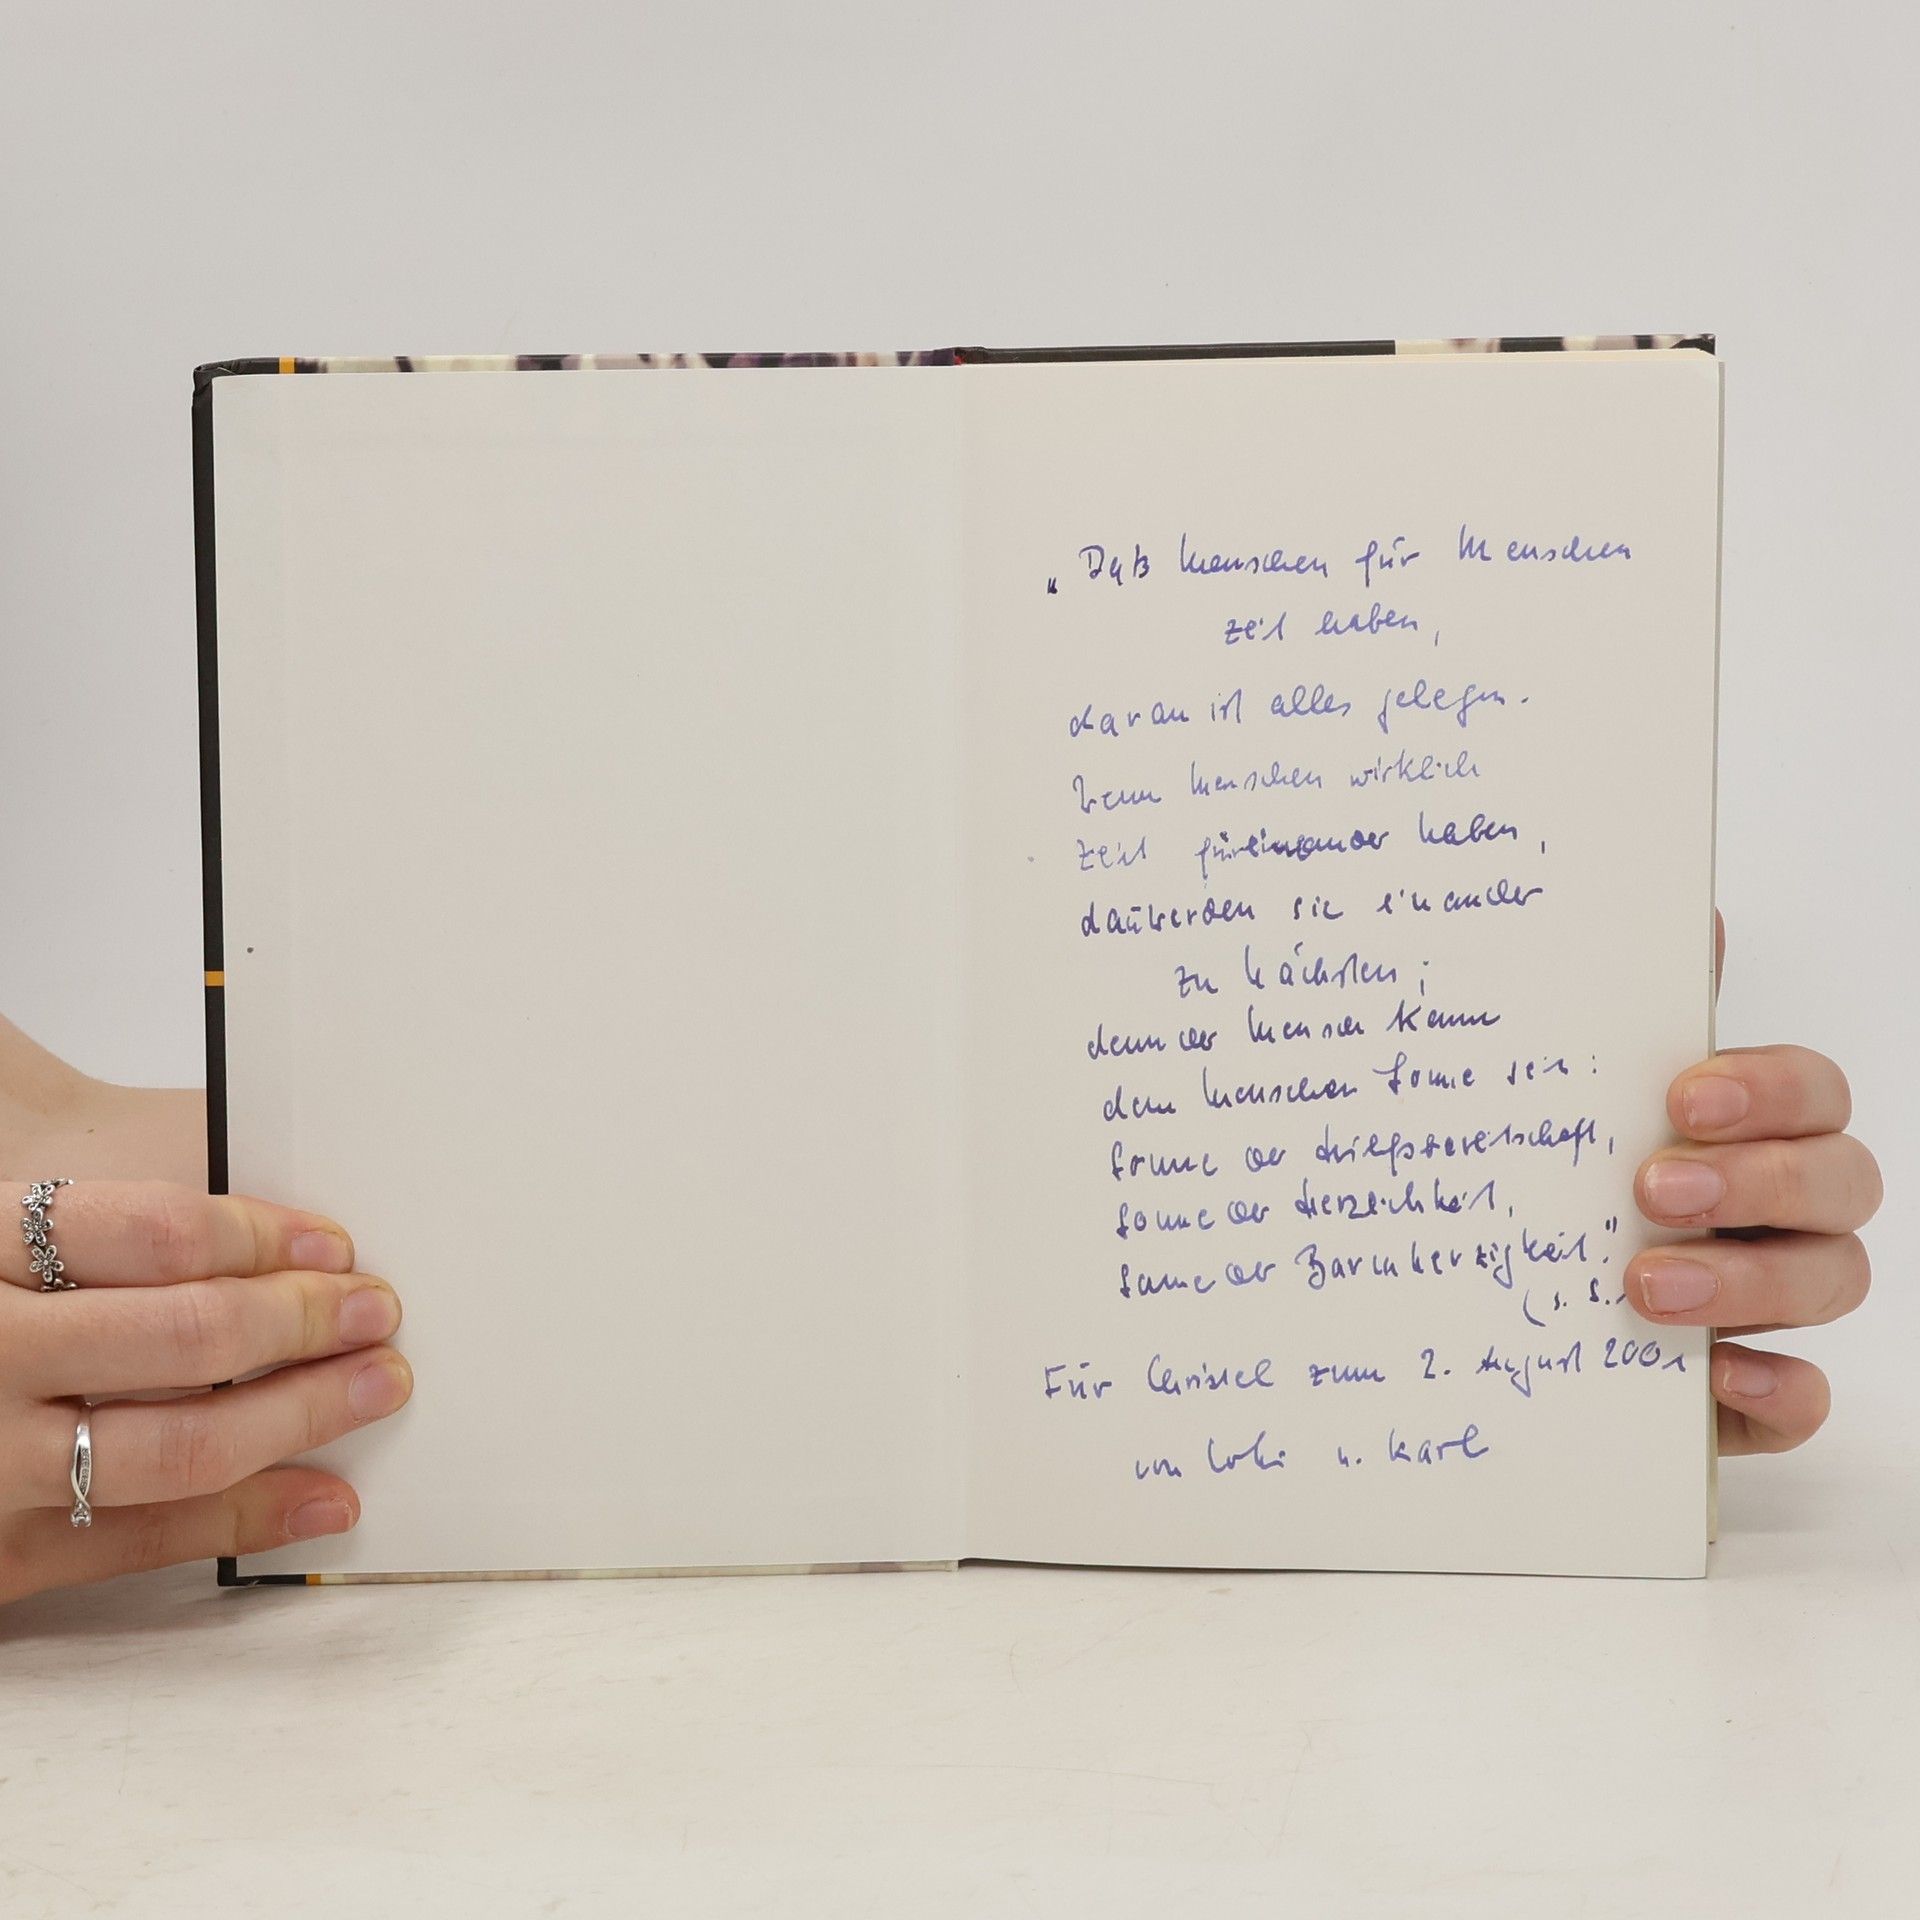 „Daß Menschen für Menschen
Zeit haben,
daran ist alles gelegen.
Wenn Menschen wirklich
Zeit füreinander haben,
dañ werden sie einander
zu Nächsten;
denn der Mensch kann
dem Menschen Sonne sein:
Sonne der
Sonne der Herzlichkeit,
Sonne der Barmherzigkeit."
(s. S.
Für Christel zum 2. August 2001
von u. Karl